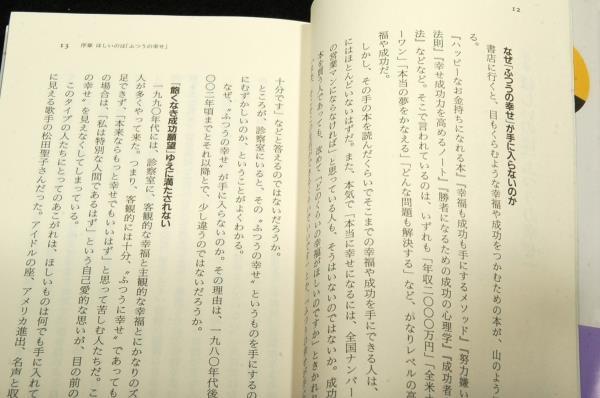 12
なぜ「ふつうの幸せ」が手に入らないのか
書店に行くと、目もくらむような幸福や成功をつかむための本が、山のよう
る。
『ハッピーなお金持ちになれる本』『幸福も成功も手にするメソッド』『努力嫌い
法則』『幸せ成功力を高めるノート』『勝者になるための成功の心理学』『成功者
法』などなど。そこで言われているのは、いずれも「年収二〇〇〇万円」「全米ナ
ーワン」「本当の夢をかなえる」「どんな問題も解決する」など、かなりレベルの高
福や成功だ。
しかし、その手の本を読んだくらいでそこまでの幸福や成功を手にできる人は、
にはほとんどいないはずだ。また、本気で「本当に幸せになるには、全国ナンバー
の営業マンにならなければ」と思っている人も、そうはいないのではないか。成功
本を買う人であっても、改めて「どのくらいの幸福がほしいのですか」ときかれれ
13 序章 ほしいのは「ふつうの幸せ」
十分です」などと答えるのではないだろうか。
ところが、診察室にいると、その〝ふつうの幸せ〟というものを手にするの
にむずかしいのか、ということがよくわかる。
なぜ、〝ふつうの幸せ〟が手に入らないのか。その理由は、一九八〇年代後
〇〇二年頃までとそれ以降とで、少し違うのではないだろうか。
「飽くなき成功願望」ゆえに満たされない
一九九〇年代には、診察室に、客観的な幸福と主観的な幸福とにかなりのズ
人が多くやって来た。つまり、客観的には十分、〝ふつうに幸せ〟であっても
足できず、「本来ならもっと幸せでもいいはず」と思って苦しむ人たちだ。こ
の場合は、「私は特別な人間であるはず」という自己愛的な思いが、目の前の
の幸せ〟を見えなくしてしまっている。
このタイプの人たちにとってのあこがれは、ほしいものは何でも手に入れて
に見える歌手の松田聖子さんだった。アイドルの座、アメリカ進出、名声と収